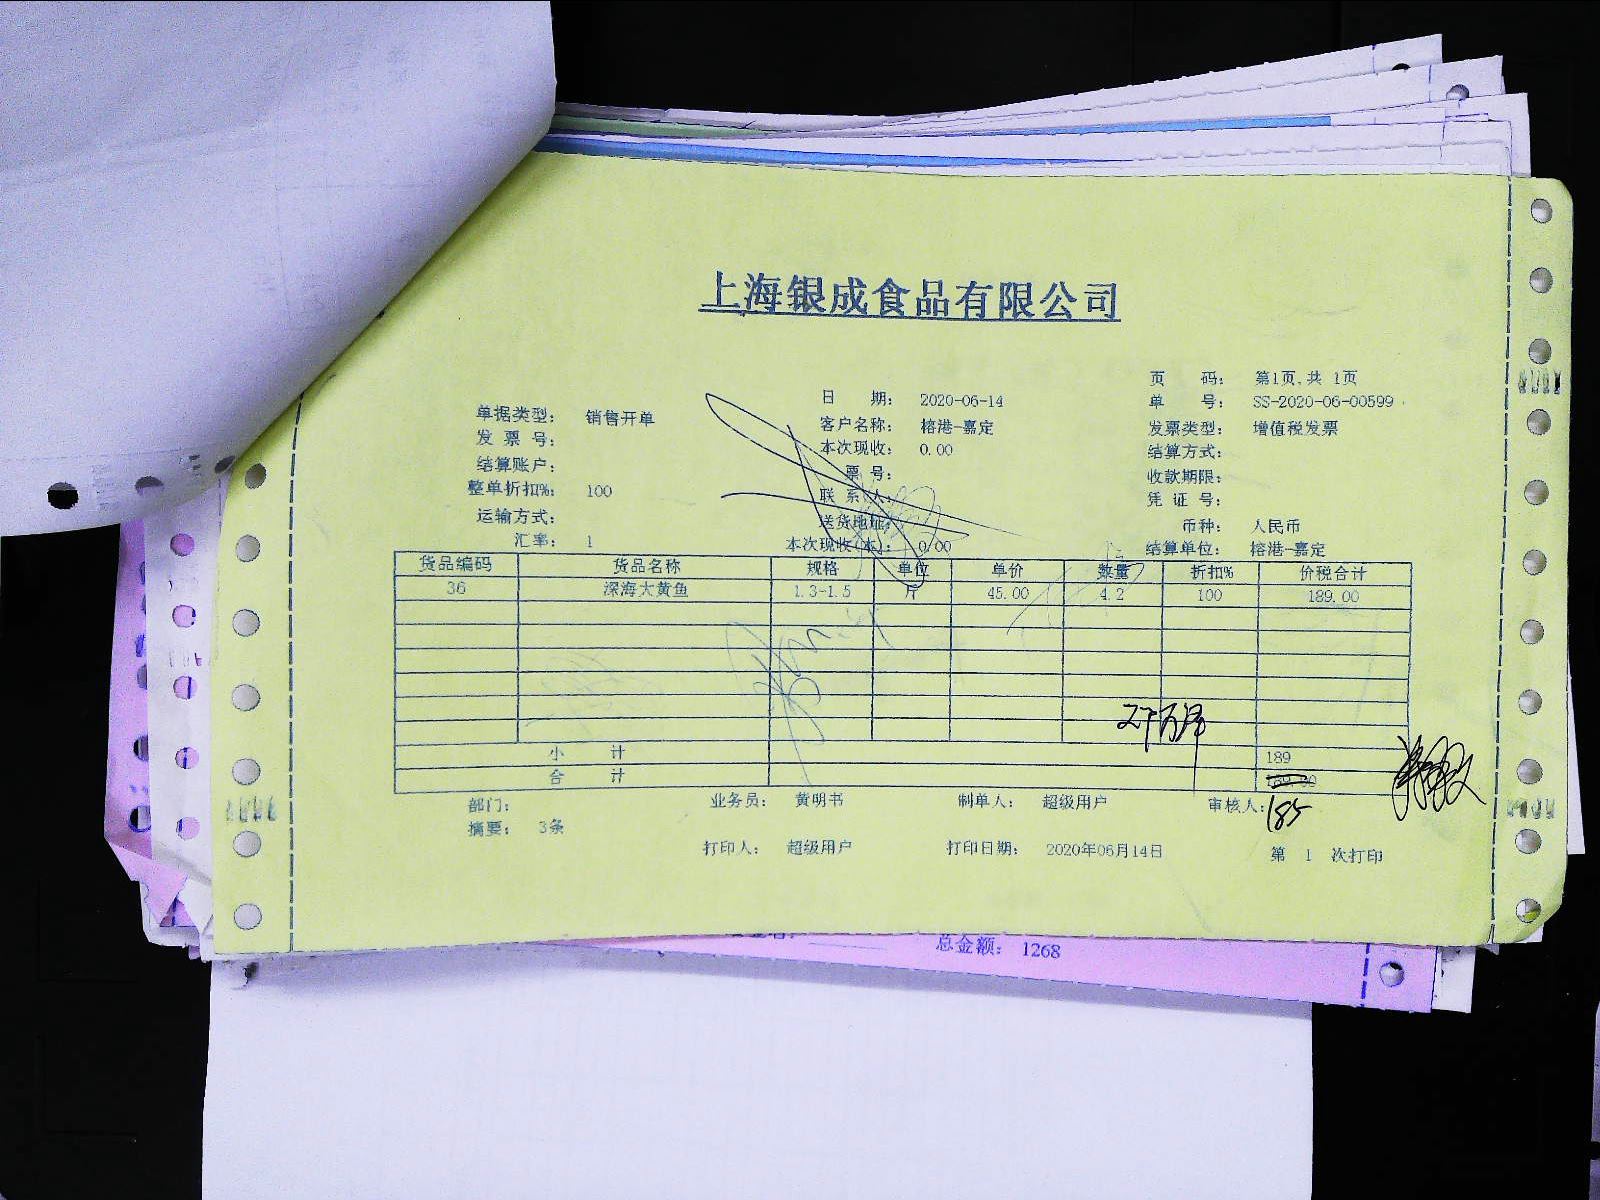 上海银成食品有限公司
页 码： 第1页,共 1页
日 期： 2020-06-14 单 号： SS-2020-06-00599
单据类型： 销售开单 客户名称： 榕港-嘉定 发票类型： 增值税发票
发 票 号： 本次现收： 0.00 结算方式：
结算账户： 票 号： 收款期限：
整单折扣%： 100 联 系 人： 凭 证 号：
运输方式： 送货地址： 币种： 人民币
汇率： 1 本次现收(本)： 0.00 结算单位： 榕港-嘉定
货品编码 货品名称 规格 单位 单价 数量 折扣% 价税合计
36 深海大黄鱼 1.3-1.5 斤 45.00 4.2 100 189.00
小 计 189
合 计 189.00
185
部门： 业务员： 黄明书 制单人： 超级用户 审核人：
摘要： 3条
打印人： 超级用户 打印日期： 2020年06月14日 第 1 次打印
总金额： 1268